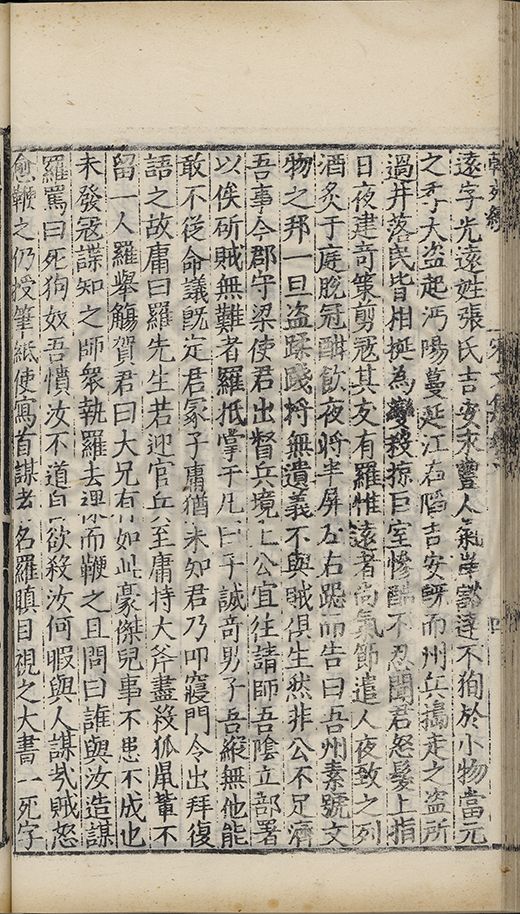 遠字光遠姓張氏吉安永豐人氣岸豁達不狥於小物當元
之季大盜起沔陽蔓延江右陷吉安旣而州兵擣走之盜所
過井落民皆相挻為變殺掠巨室慘酷不忍聞君怒髮上指
日夜建竒策剪冦其友有羅惟遠者尚氣節遣人夜致之列
酒炙于庭脫冠酣飲夜將半屏左右跽而告曰吾州素號文
物之邦一旦盜蹂踐將無遺義不與賊俱生然非公不足濟
吾事今郡守梁使君出督兵境上公宜往請師吾陰立部署
以俟斫賊無難者羅抵掌于几曰子誠竒男子吾縱無他能
敢不從命議旣定君冢子庸猶未知君乃叩寢門令出拜復
語之故庸曰羅先生若迎官兵至庸持大斧盡殺狐鼠輩不
留一人羅舉觴賀君曰大兄有如此豪傑兒事不患不成也
未發冦諜知之師衆執羅去而鞭之且問曰誰與汝造謀
羅罵曰死狗奴吾憤汝不道自欲殺汝何暇與人謀㢤賊怒
愈鞭之仍授筆紙使寫首謀者名羅瞋目視之大書一死字